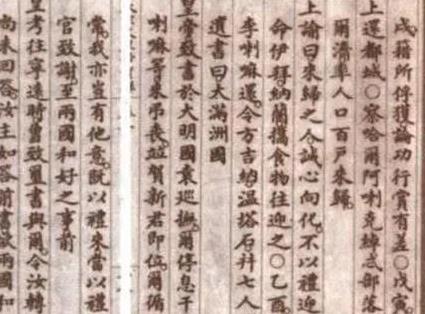 成籍所俘獲論功行賞有差○戊寅
上還都城○察哈爾阿喇克綽忒部落
爾濟率人口百戶來歸
上諭曰來歸之人誠心向化不以禮迎
命伊拜納蘭攜食物往迎之○乙酉
李喇嘛還令方吉納溫塔石科七人
遺書曰大滿洲國
皇帝致書於大明國袁巡撫爾停息干
喇嘛等來弔喪並賀新君即位爾循
常我亦豈有他意既以禮來當以禮
官致謝至兩國和好之事前
皇考往寧遠時曾致璽書與爾令汝轉
尚未回答汝主如答前書欲兩國和